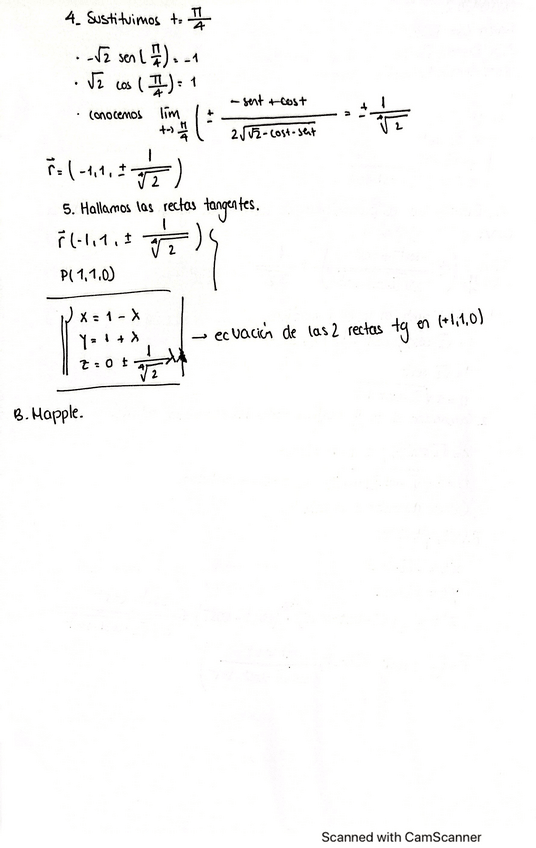 4_ Sustituimos t= π/4
· -√2 sen(π/4) = -1
· √2 cos(π/4) = 1
· conocemos lím t→π/4 (± -sent+cost / 2√(√2-cost-sent) = ± 1/⁴√2
r⃗ = (-1,1, ± 1/⁴√2)
5. Hallamos las rectas tangentes.
r⃗ (-1,1, ± 1/⁴√2)
P(1,1,0)
x = 1 - λ
y = 1 + λ → ecuación de las 2 rectas tg en (+1,1,0)
z = 0 ± 1/⁴√2 λ
B. Mapple.
Scanned with CamScanner